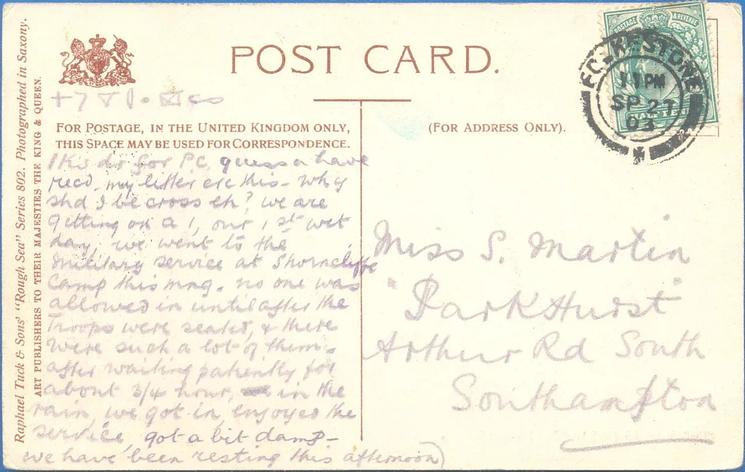 Raphael Tuck & Sons' "Rough Sea" Series 802. Photographed in Saxony.
ART PUBLISHERS TO THEIR MAJESTIES THE KING & QUEEN.
POST CARD.
FOR POSTAGE, IN THE UNITED KINGDOM ONLY,
THIS SPACE MAY BE USED FOR CORRESPONDENCE.
for P.C. guess u have
recd. my letter ere this - why
shd I be cross eh? we are
getting on a 1, our 1st wet
day, we went to the
military service at Shorncliffe
Camp this mng. no one was
allowed in until after the
Troops were seated, & there
were such a lot of them.
after waiting patiently for
about 3/4 hour, in the
rain, we got in, enjoyed the
service, got a bit damp -
we have been resting this afternoon)
(FOR ADDRESS ONLY).
POSTAGE & REVENUE
HALFPENNY
FOLKESTONE
11 PM
SP 27
03
Miss S. Martin
"Parkhurst"
Arthur Rd South
Southampton